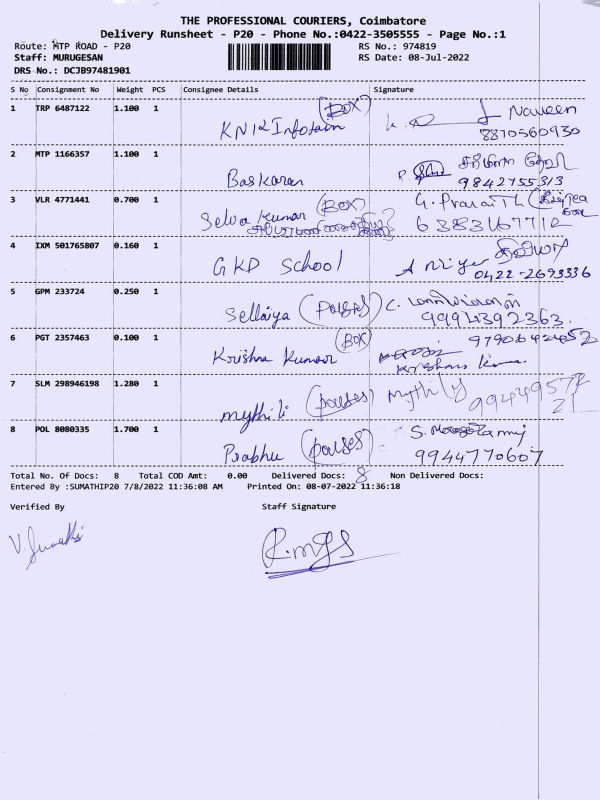 THE PROFESSIONAL COURIERS, Coimbatore
Delivery Runsheet - P20 - Phone No.:0422-3505555 - Page No.:1
Route: MTP ROAD - P20 RS No.: 974819
Staff: MURUGESAN RS Date: 08-Jul-2022
DRS No.: DCJB97481901
S No Consignment No Weight PCS Consignee Details Signature
1 TRP 6487122 1.100 1 (BOX) Naveen
KN12 Infotain 8870560930
2 MTP 1166357 1.100 1
Baskaran 9842755313
3 VLR 4771441 0.700 1 (BOX)
Selva kumar 6383167712
4 IXM 501765807 0.160 1
GKD School 0422-2693336
5 GPM 233724 0.250 1
Sellaiya 9994392363
6 PGT 2357463 0.100 1 (BOX) 9790642452
Krishna Kumar
7 SLM 298946198 1.280 1 Mythily
mythili
8 POL 8080335 1.700 1
Prabhu 9944770607
Total No. Of Docs: 8 Total COD Amt: 0.00 Delivered Docs: 8 Non Delivered Docs:
Entered By :SUMATHIP20 7/8/2022 11:36:08 AM Printed On: 08-07-2022 11:36:18
Verified By Staff Signature